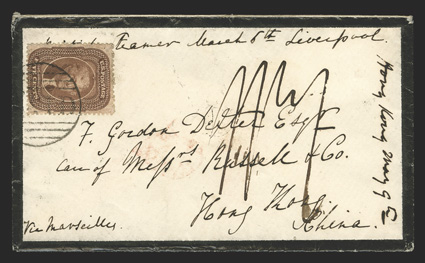 Steamer March 6th Liverpool.
U.S. POSTAGE
F. Gordon Dexter Esqr
care of Messrs Russell & Co.
Hong Kong,
China.
Via Marseilles.
Hong Kong May 9